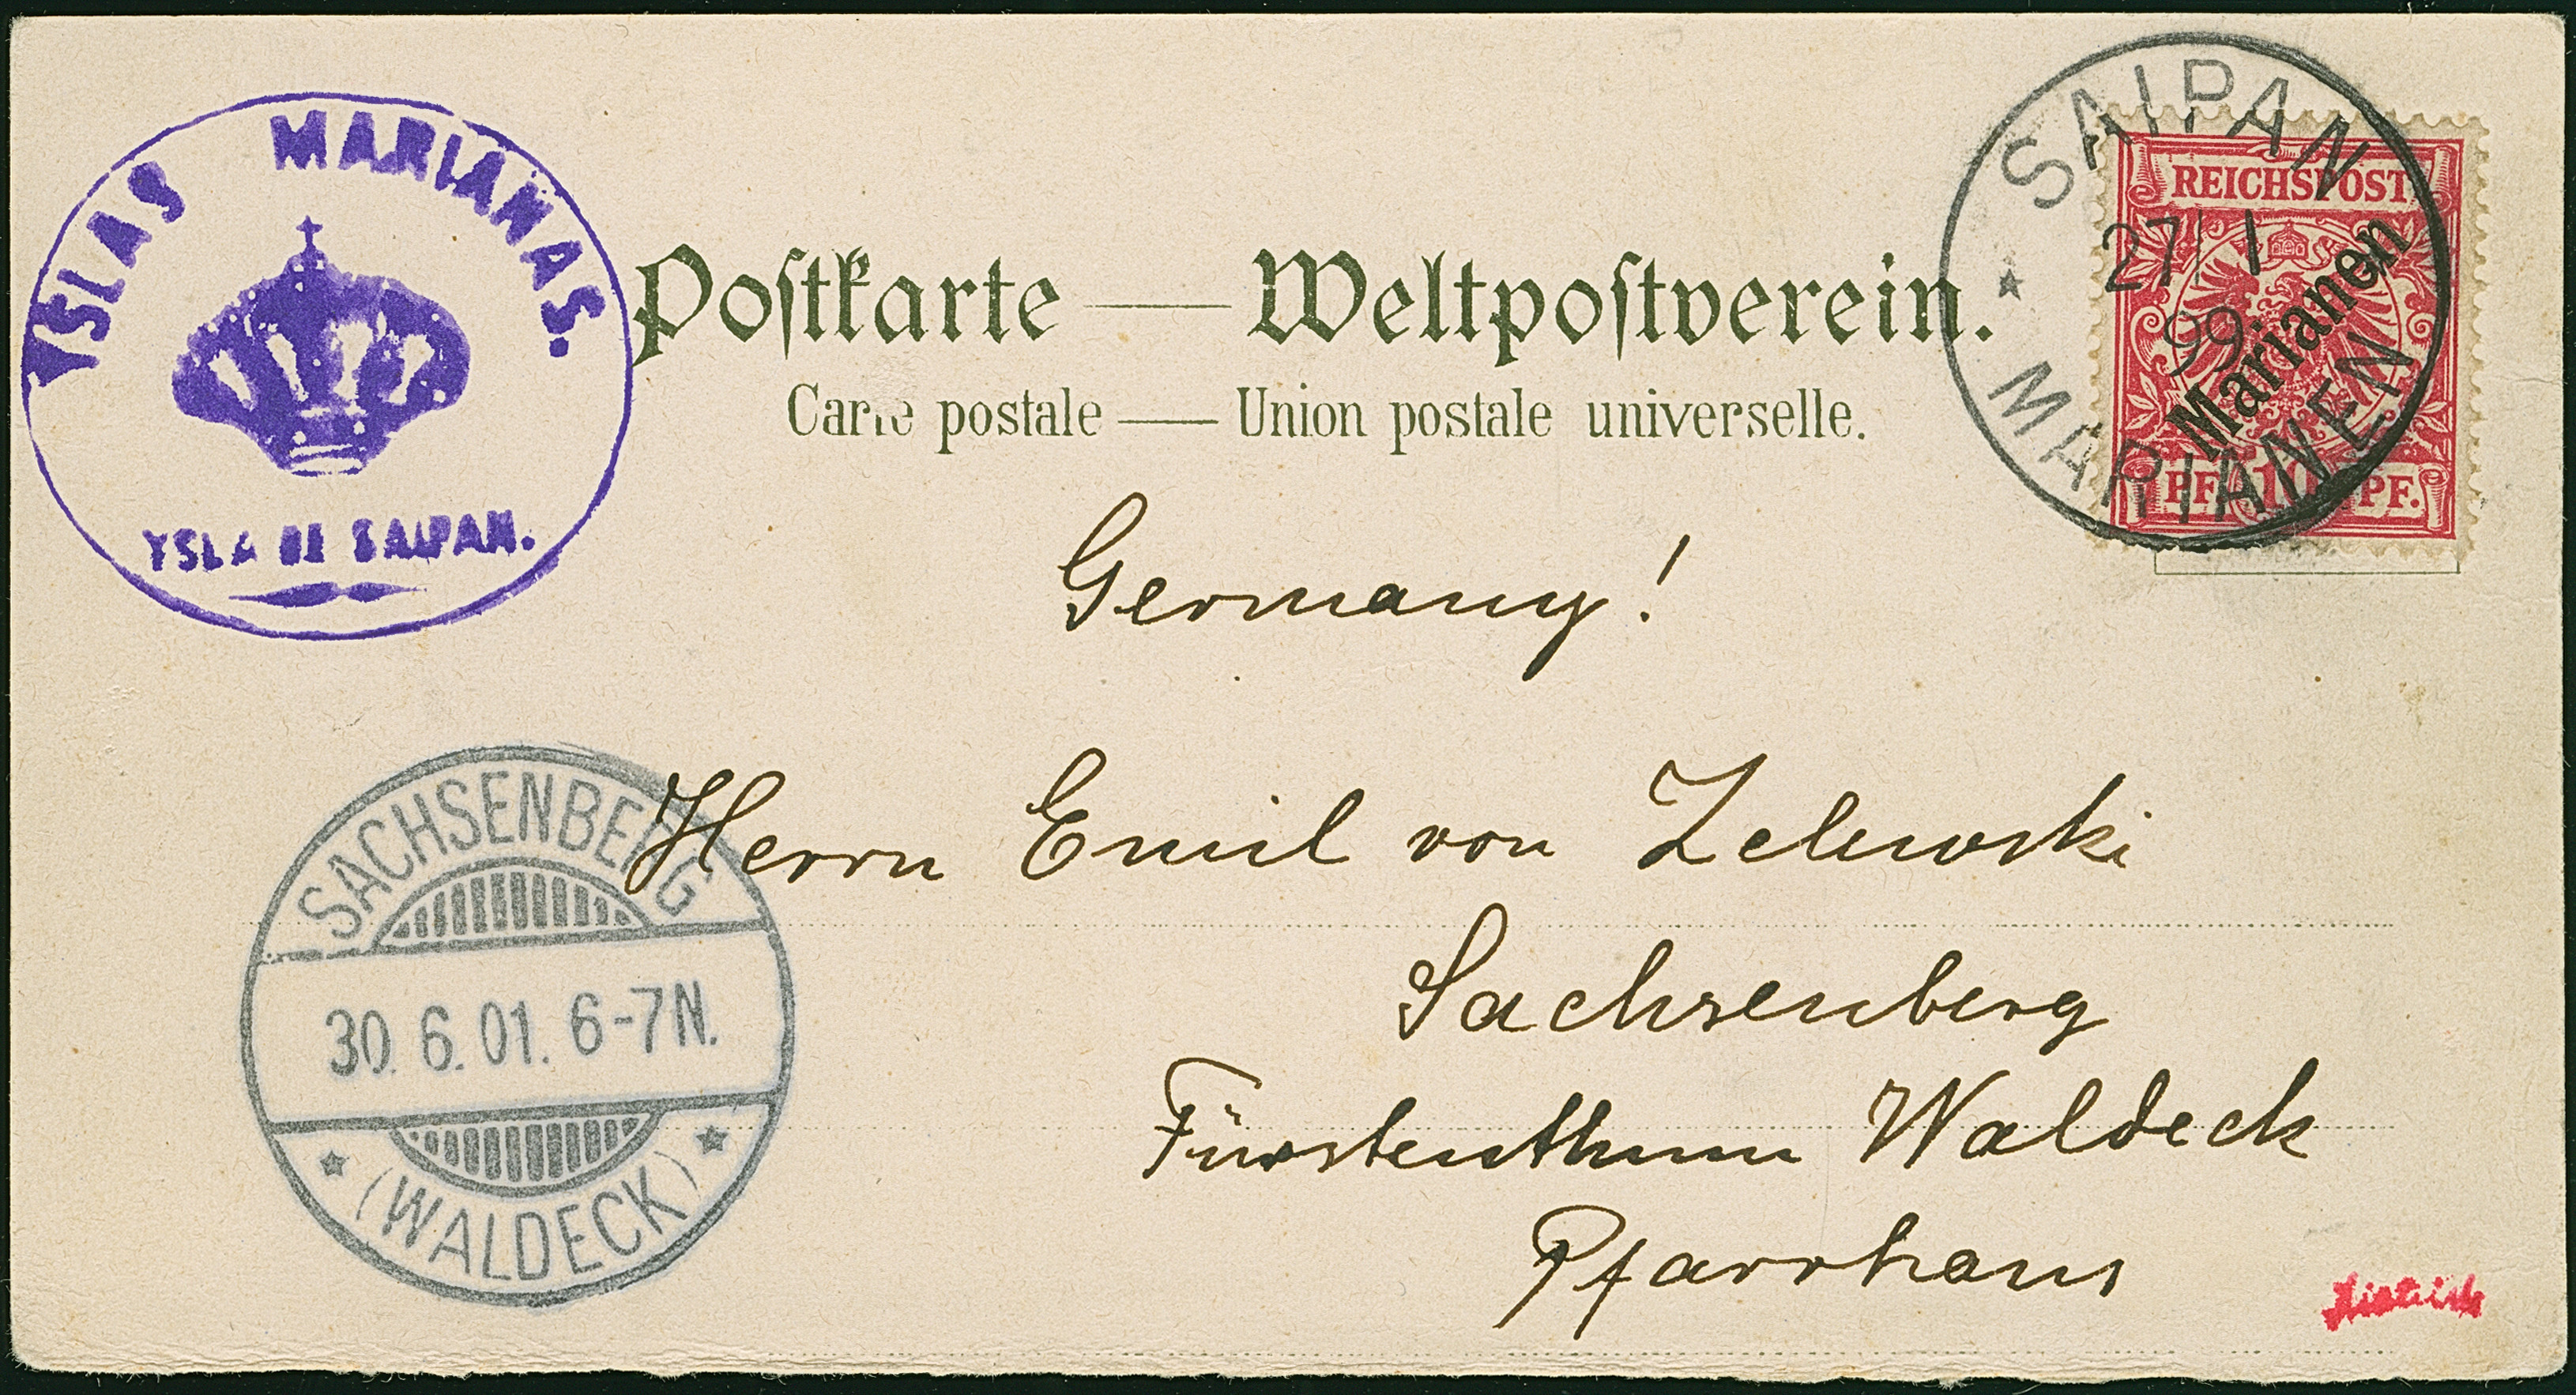 YSLAS MARIANAS.
YSLA DE SAIPAN.
Postkarte — Weltpostverein.
Carte postale — Union postale universelle.
SAIPAN
27/1
99
MARIANEN
REICHSPOST
Marianen
PF. 10 PF.
Germany!
Herrn Emil von Zelewski
Sachsenberg
Fürstenthum Waldeck
Pfarrhaus
SACHSENBERG
30. 6. 01. 6-7N.
(WALDECK)